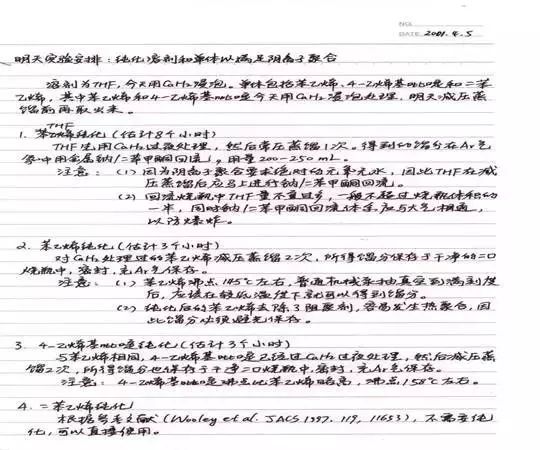 NO.
DATE 2001.4.5
明天实验安排:纯化溶剂和单体以满足阴离子聚合
溶剂为THF,今天用CaH₂浸泡。单体包括苯乙烯、4-乙烯基吡啶和二苯
乙烯,其中苯乙烯和4-乙烯基吡啶今天用CaH₂浸泡处理,明天减压蒸
馏前再取出来。
THF
1. 纯化(估计8个小时)
THF先用CaH₂过夜处理,然后常压蒸馏1次。得到的馏分在Ar气
氛中用金属钠/二苯甲酮回流,用量200-250mL。
注意:(1)因为阴离子聚合要求绝对的无氧无水,因此THF在减
压蒸馏后应马上进行钠/二苯甲酮回流。
(2)回流烧瓶中THF量不宜过多,一般不超过烧瓶体积的
一半,同时钠/二苯甲酮回流体系应与大气相通,
以防爆炸。
2. 苯乙烯纯化(估计3个小时)
对CaH₂处理过的苯乙烯减压蒸馏2次,所得馏分保存于干净的二口
烧瓶中,密封,充Ar气保存。
注意:(1)苯乙烯沸点145℃左右,普通机械泵抽真空到满刻度
后,应该在较低温度下就可以得到馏分。
(2)纯化后的苯乙烯去除了阻聚剂,容易发生热聚合,因
此馏分必须避光保存。
3. 4-乙烯基吡啶纯化(估计3个小时)
与苯乙烯相同,4-乙烯基吡啶已经过CaH₂过夜处理,然后减压蒸
馏2次,所得馏分也保存于干净二口烧瓶中,密封,充Ar气保存。
注意:4-乙烯基吡啶沸点比苯乙烯略高,沸点158℃左右。
4. 二苯乙烯纯化
根据参考文献(Wooley et al. JACS 1997, 119, 11653),不需要纯
化,可以直接使用。